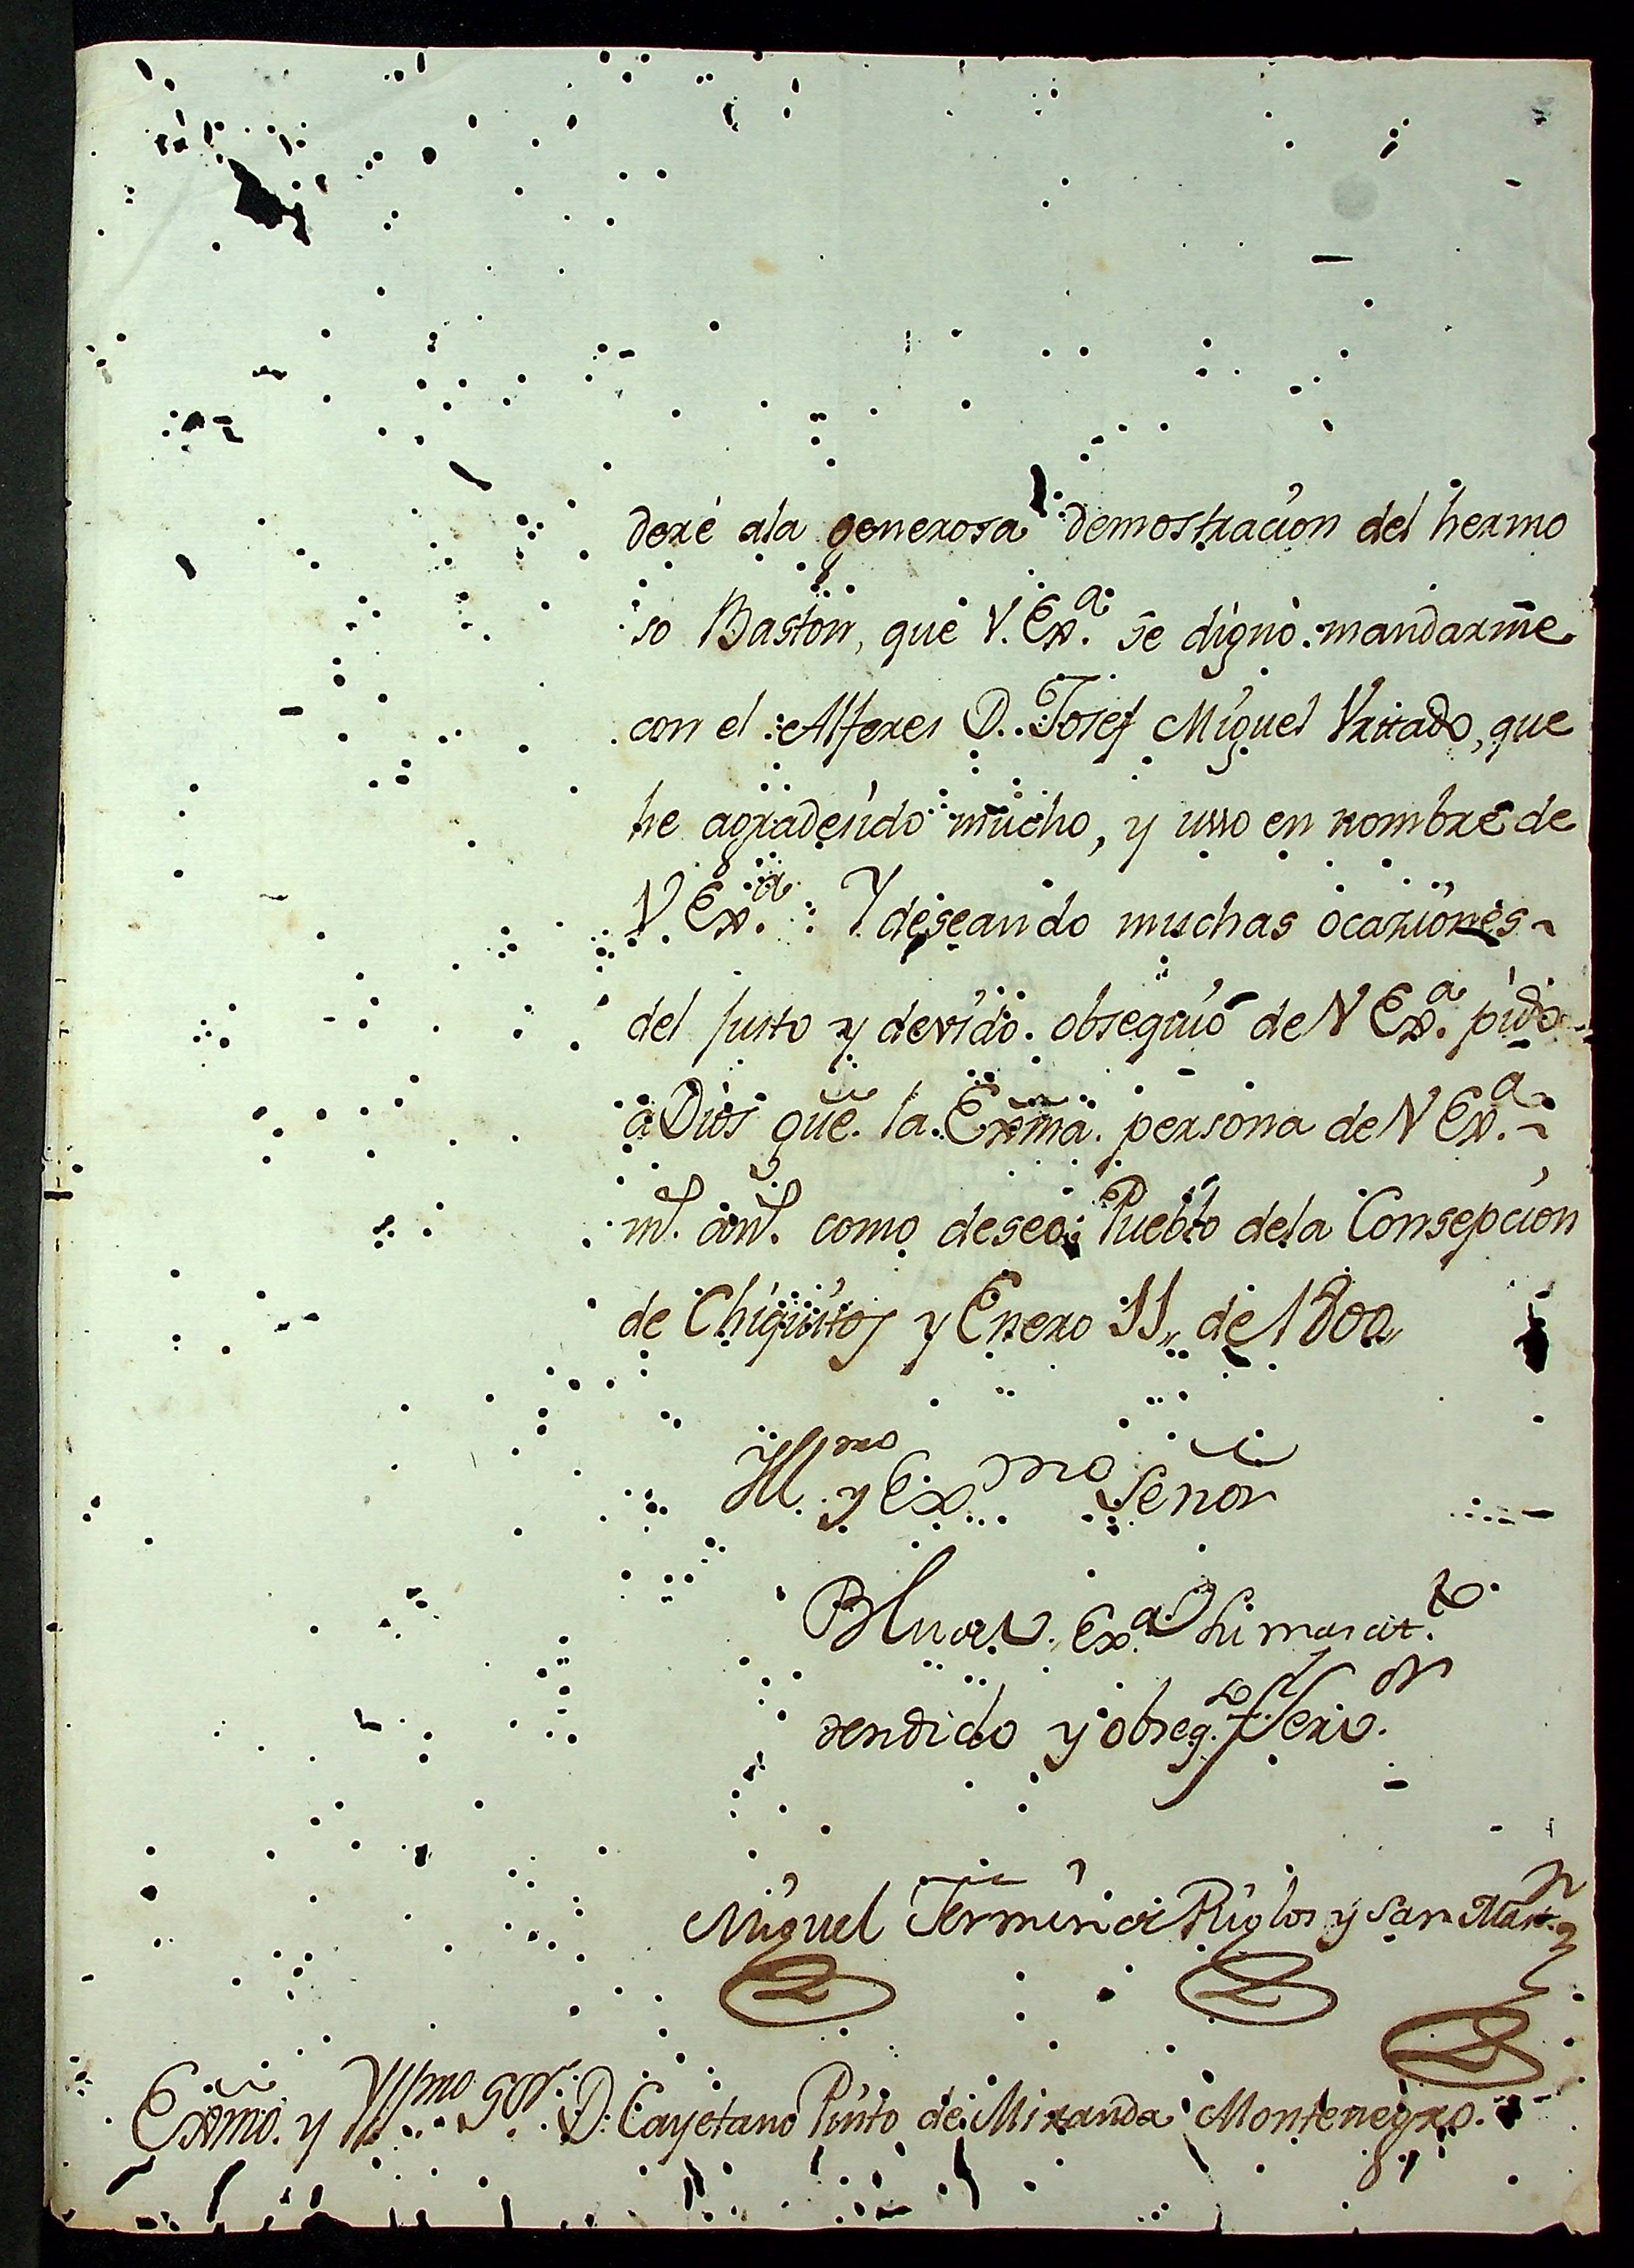 deré ala generosa demostracion del hermo
so Baston, que V. Ex.ª se dignó mandarme
con el Alferes D. Josef Miguel Vrtado, que
he agradecido mucho, y usso en nombre de
V. Ex.ª: Y deseando muchas ocaziones
del justo y devido obsequio de V Ex.ª pido
a Dios gũe. la Exma. persona de V Ex.ª
m.s an.s como deseo: Pueblo dela Consepcion
de Chiquitos y Enero 11,, de 1800,,
Ill.mo y Ex.mo Señor
Ex.ª Su mas at.to
rendido y obseq.so Serv.or
Miguel Fermin de Riglos y San Mart.n
Exmo. y Yll.mo Sor. D. Cayetano Pinto de Miranda Montenegro.